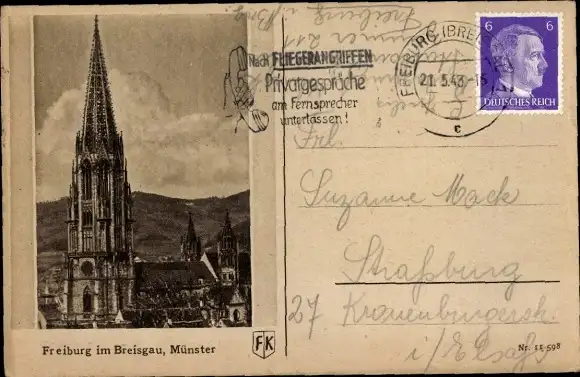 Freiburg i/Brsg.
Nach FLIEGERANGRIFFEN
Privatgespräche
am Fernsprecher
unterlassen!
FREIBURG (BREISGAU)
21.5.43-15
c
6 6
DEUTSCHES REICH
Frl.
Suzanne Mack
Straßburg
27 Kronenburgerstr.
i/Elsaß
Freiburg im Breisgau, Münster
FK
Nr. 11 598